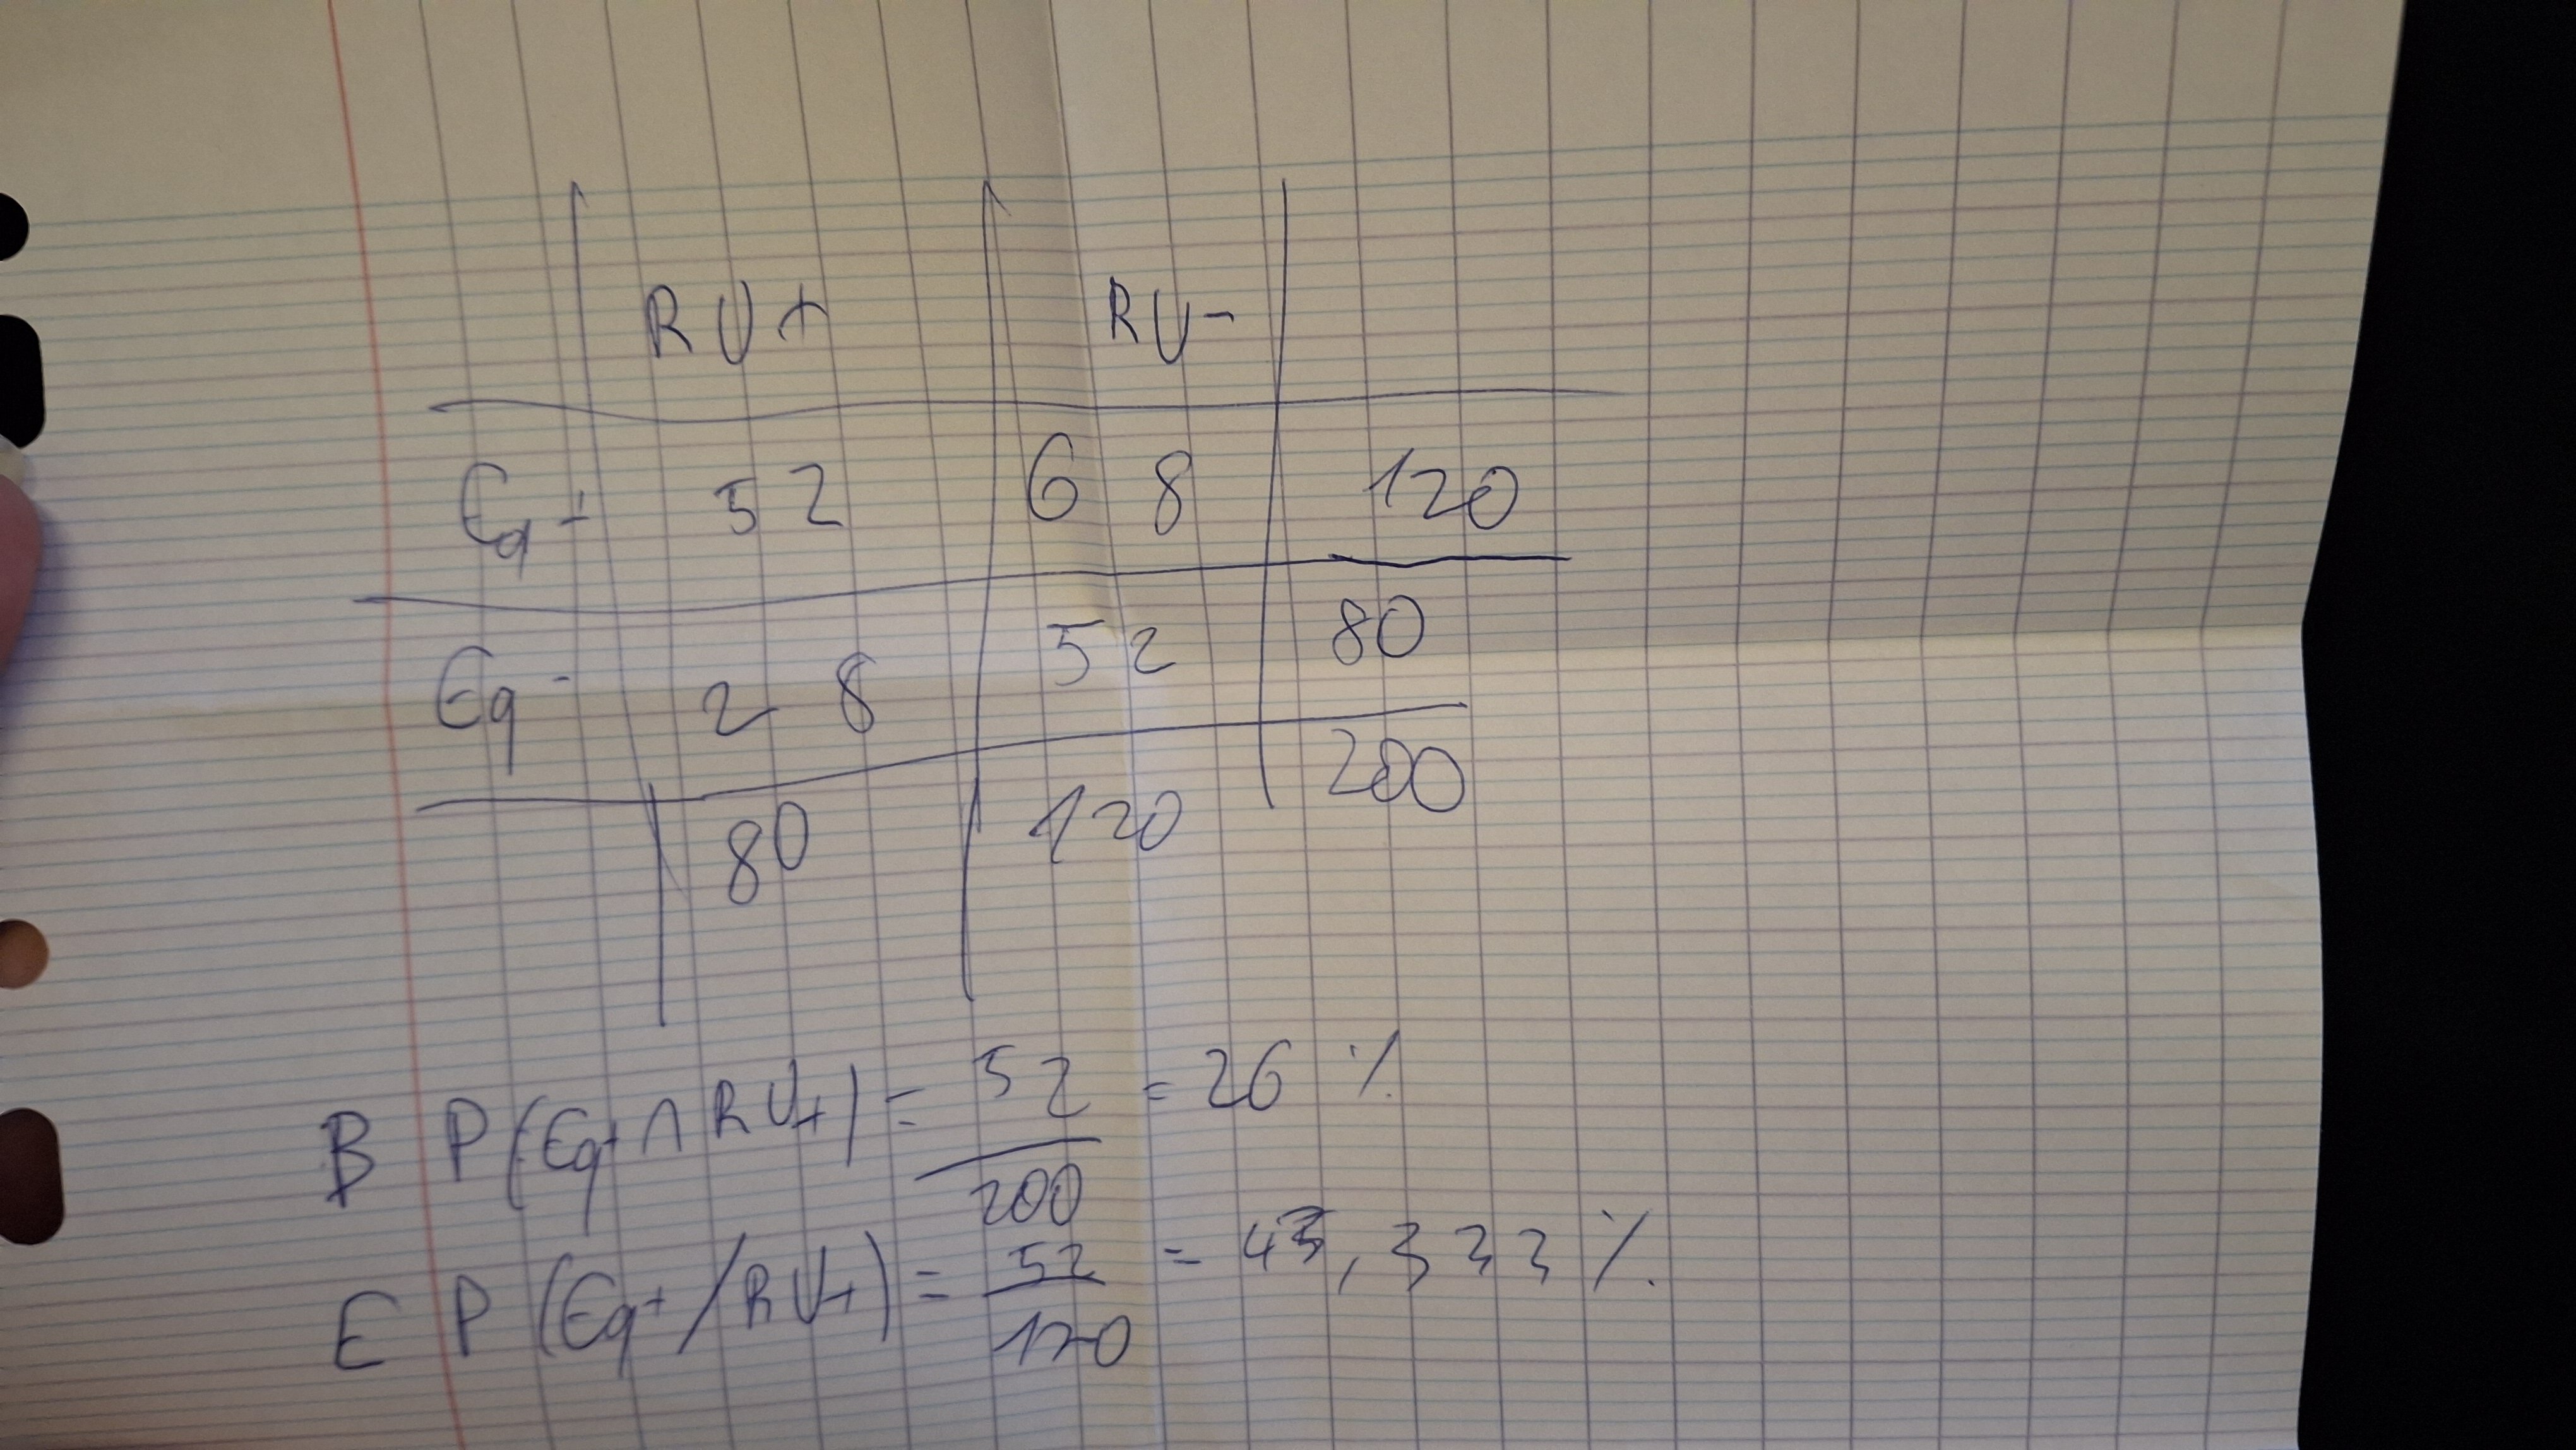 RU+ RU-
Eq+ 52 68 120
Eq- 28 52 80
80 120 200
B P(Eq+ ∩ RU+) = 52/200 = 26 %
E P(Eq+/RU+) = 52/120 = 43,333 %